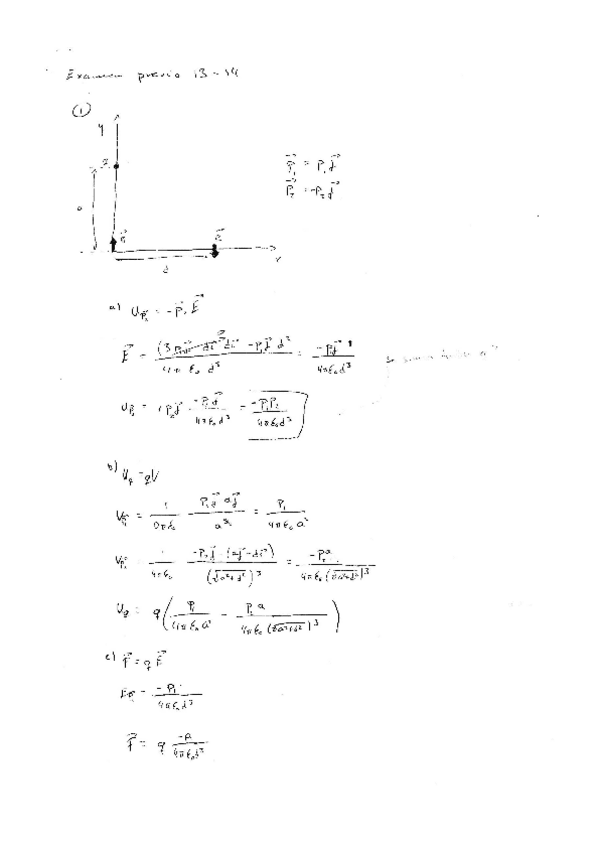 Examen previo 13-14
①
y
q
a
P⃗₁
P⃗₂
x
d
P⃗₁ = P₁ j⃗
P⃗₂ = -P₂ j⃗
a) U_P⃗₂ = -P⃗ · E⃗
E⃗ = -P₁ j⃗ / 4πε₀ d³
U_P₂ = +P₂ j⃗ · -P₁ j⃗ / 4πε₀ d³ = -P₁P₂ / 4πε₀ d³
b) U_q = qV
P₁ j⃗ · a j⃗ / a³ = P₁ / 4πε₀ a²
1 / 4πε₀ -P₂ j⃗ · (a j⃗ - d i⃗) / (√a²+d²)³ = -P₂ a / 4πε₀ (√a²+d²)³
U_q = q ( P₁ / 4πε₀ a² - P₂ a / 4πε₀ (√a²+d²)³ )
c) F⃗ = q E⃗
-P₁ / 4πε₀ d³
F⃗ = q -P₁ / 4πε₀ d³